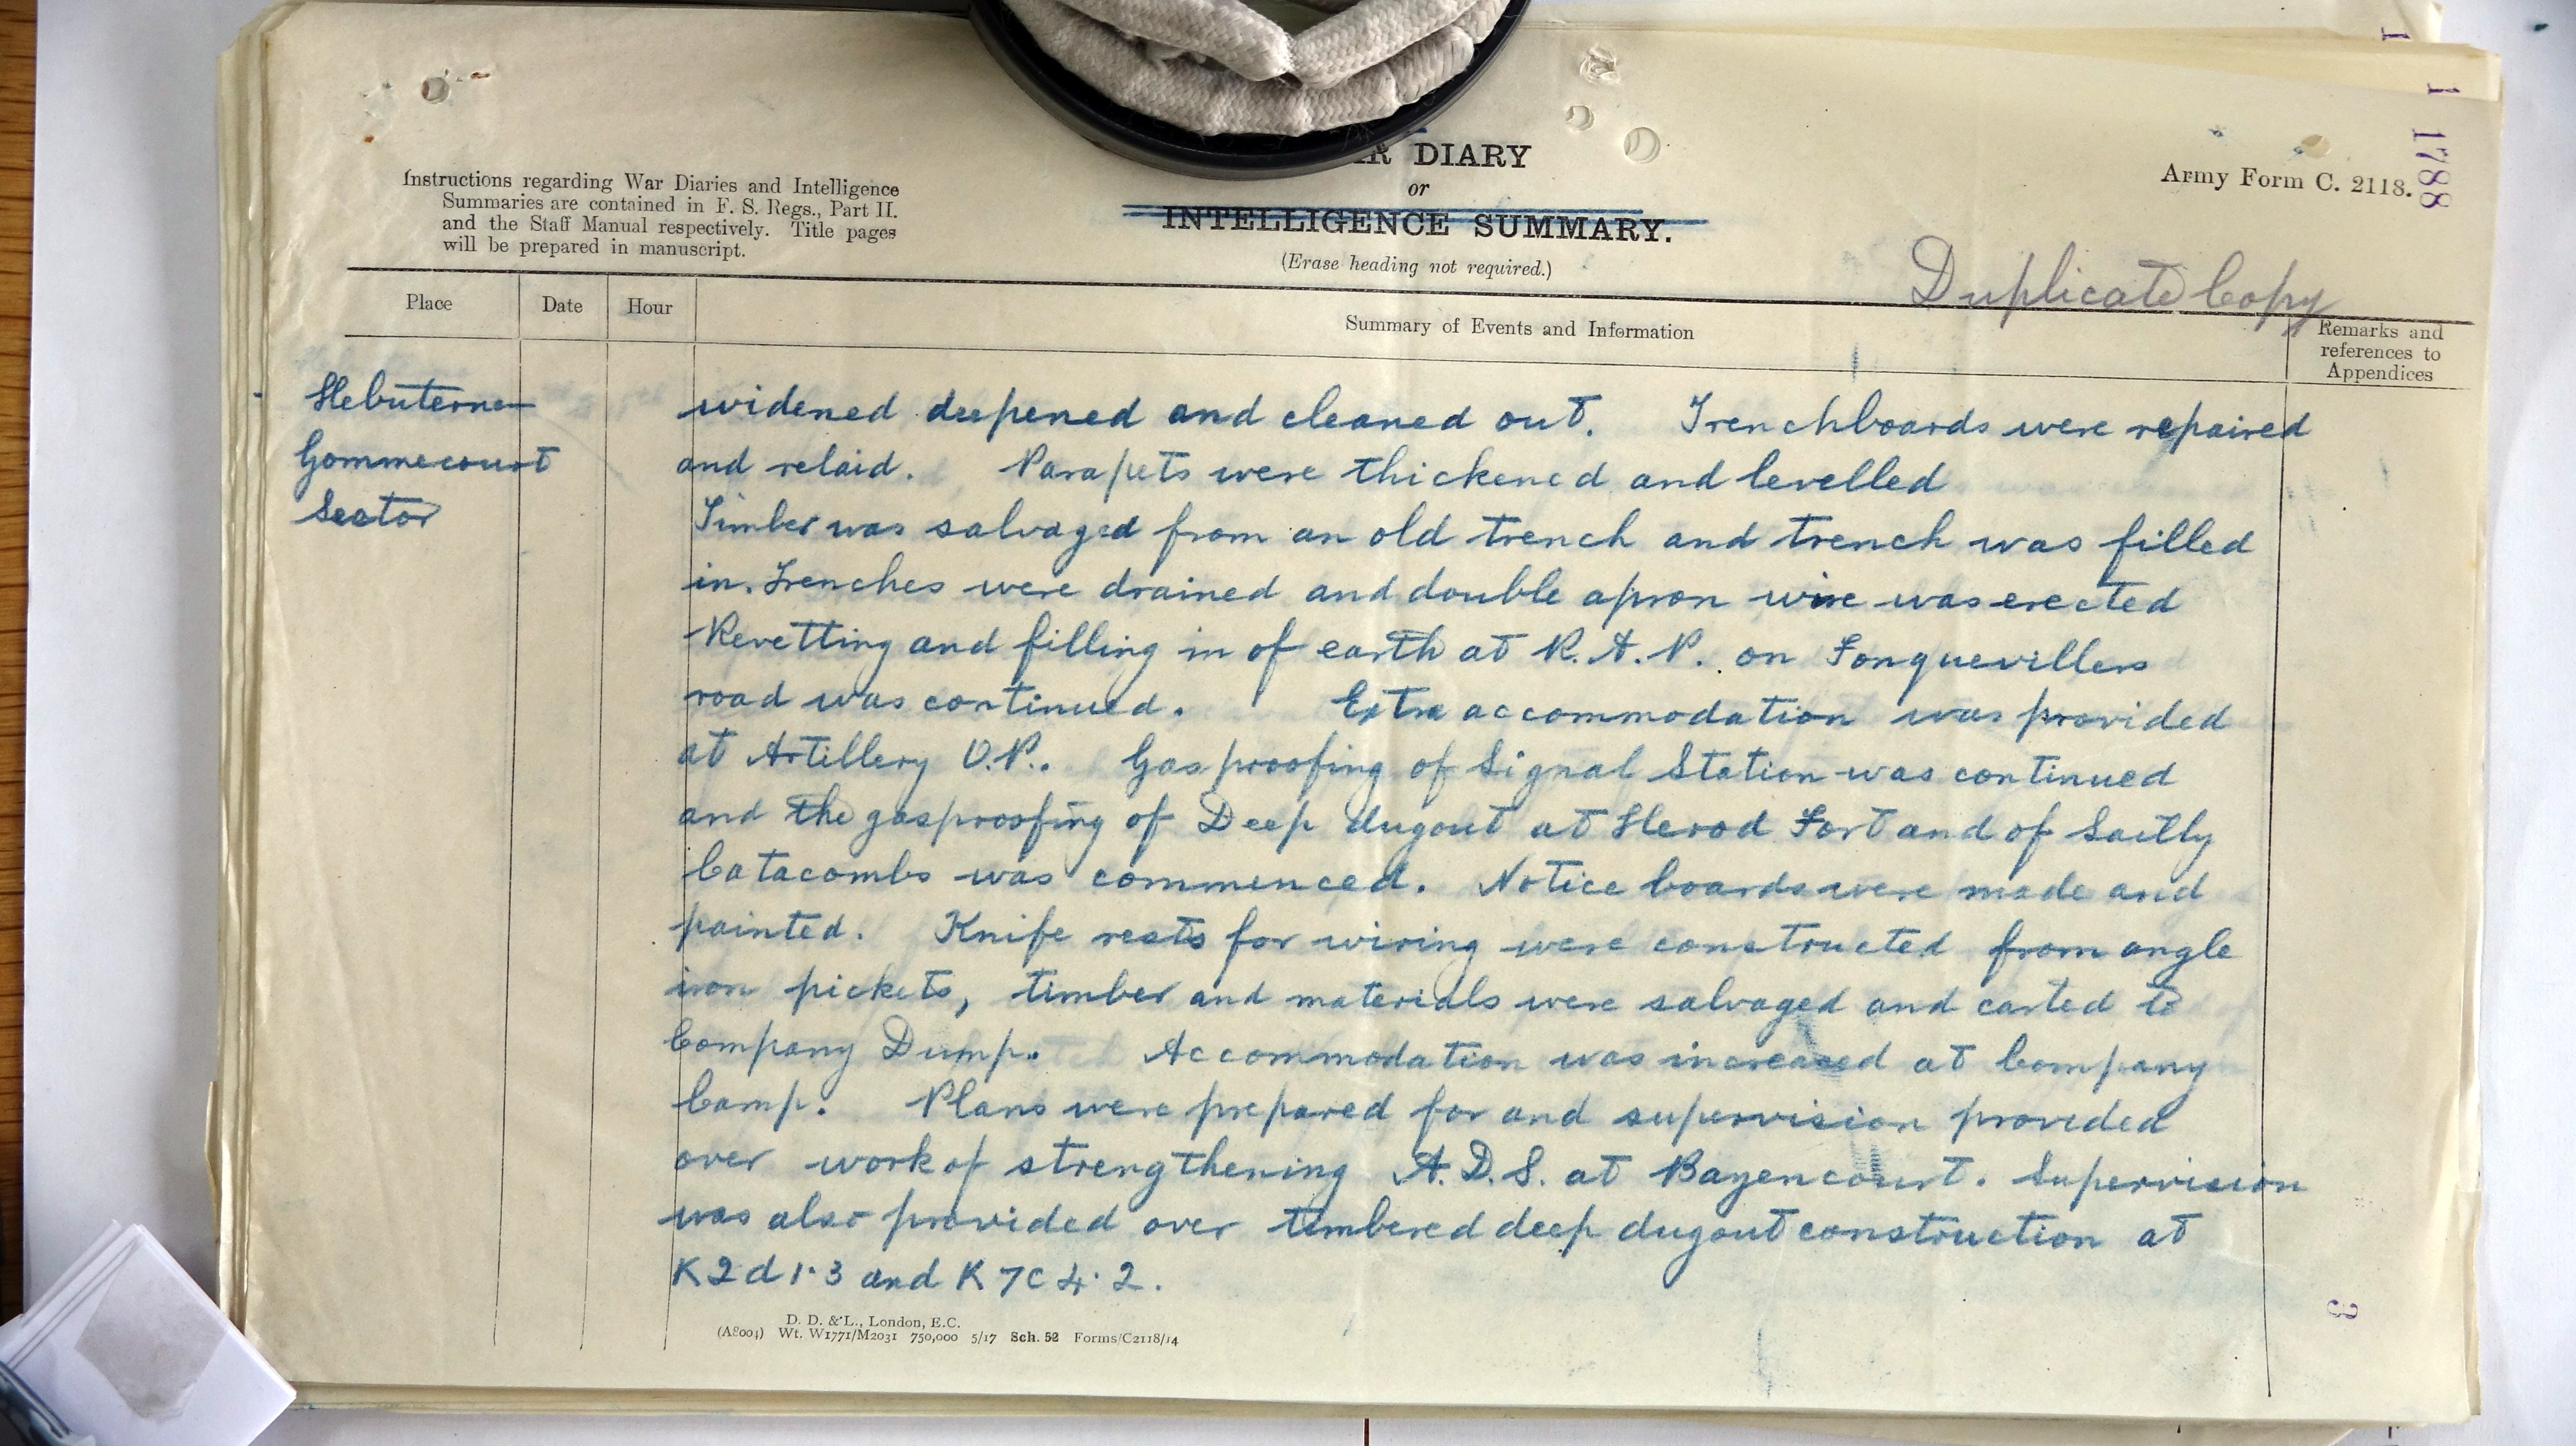 1 1788
Instructions regarding War Diaries and Intelligence
Summaries are contained in F. S. Regs., Part II.
and the Staff Manual respectively. Title pages
will be prepared in manuscript.
DIARY
or
INTELLIGENCE SUMMARY.
(Erase heading not required.)
Army Form C. 2118.
Duplicate Copy
Place
Date
Hour
Summary of Events and Information
Remarks and
references to
Appendices
Hebuterne
Gommecourt
Sector
widened deepened and cleaned out. Trenchboards were repaired
and relaid. Parapets were thickened and levelled
Timber was salvaged from an old trench and trench was filled
in. Trenches were drained and double apron wire was erected
Revetting and filling in of earth at R.A.P. on Fonquevillers
road was continued. Extra accommodation was provided
at Artillery O.P.. Gasproofing of Signal Station was continued
and the gasproofing of Deep dugout at Herod Fort and of Sailly
Catacombs was commenced. Notice boards were made and
painted. Knife rests for wiring were constructed from angle
iron pickets, timber and materials were salvaged and carted to
Company Dump. Accommodation was increased at Company
Camp. Plans were prepared for and supervision provided
over work of strengthening A.D.S. at Bayencourt. Supervision
was also provided over timbered deep dugout construction at
K2d1.3 and K7C4.2.
3
D. D. & L., London, E.C.
(A8004) Wt. W1771/M2031 750,000 5/17 Sch. 52 Forms/C2118/14